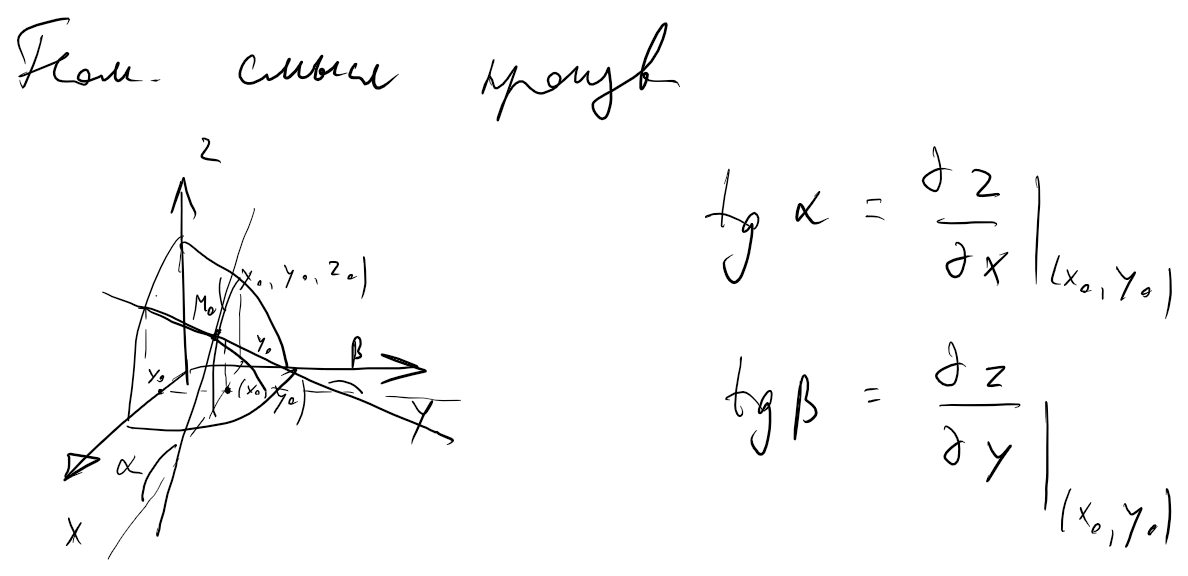 Геом. смысл произв
Z
(x₀, y₀, z₀)
M₀
y₀
β
x₀
(x₀, y₀)
y
α
X
tg α = ∂z/∂x |(x₀, y₀)
tg β = ∂z/∂y |(x₀, y₀)